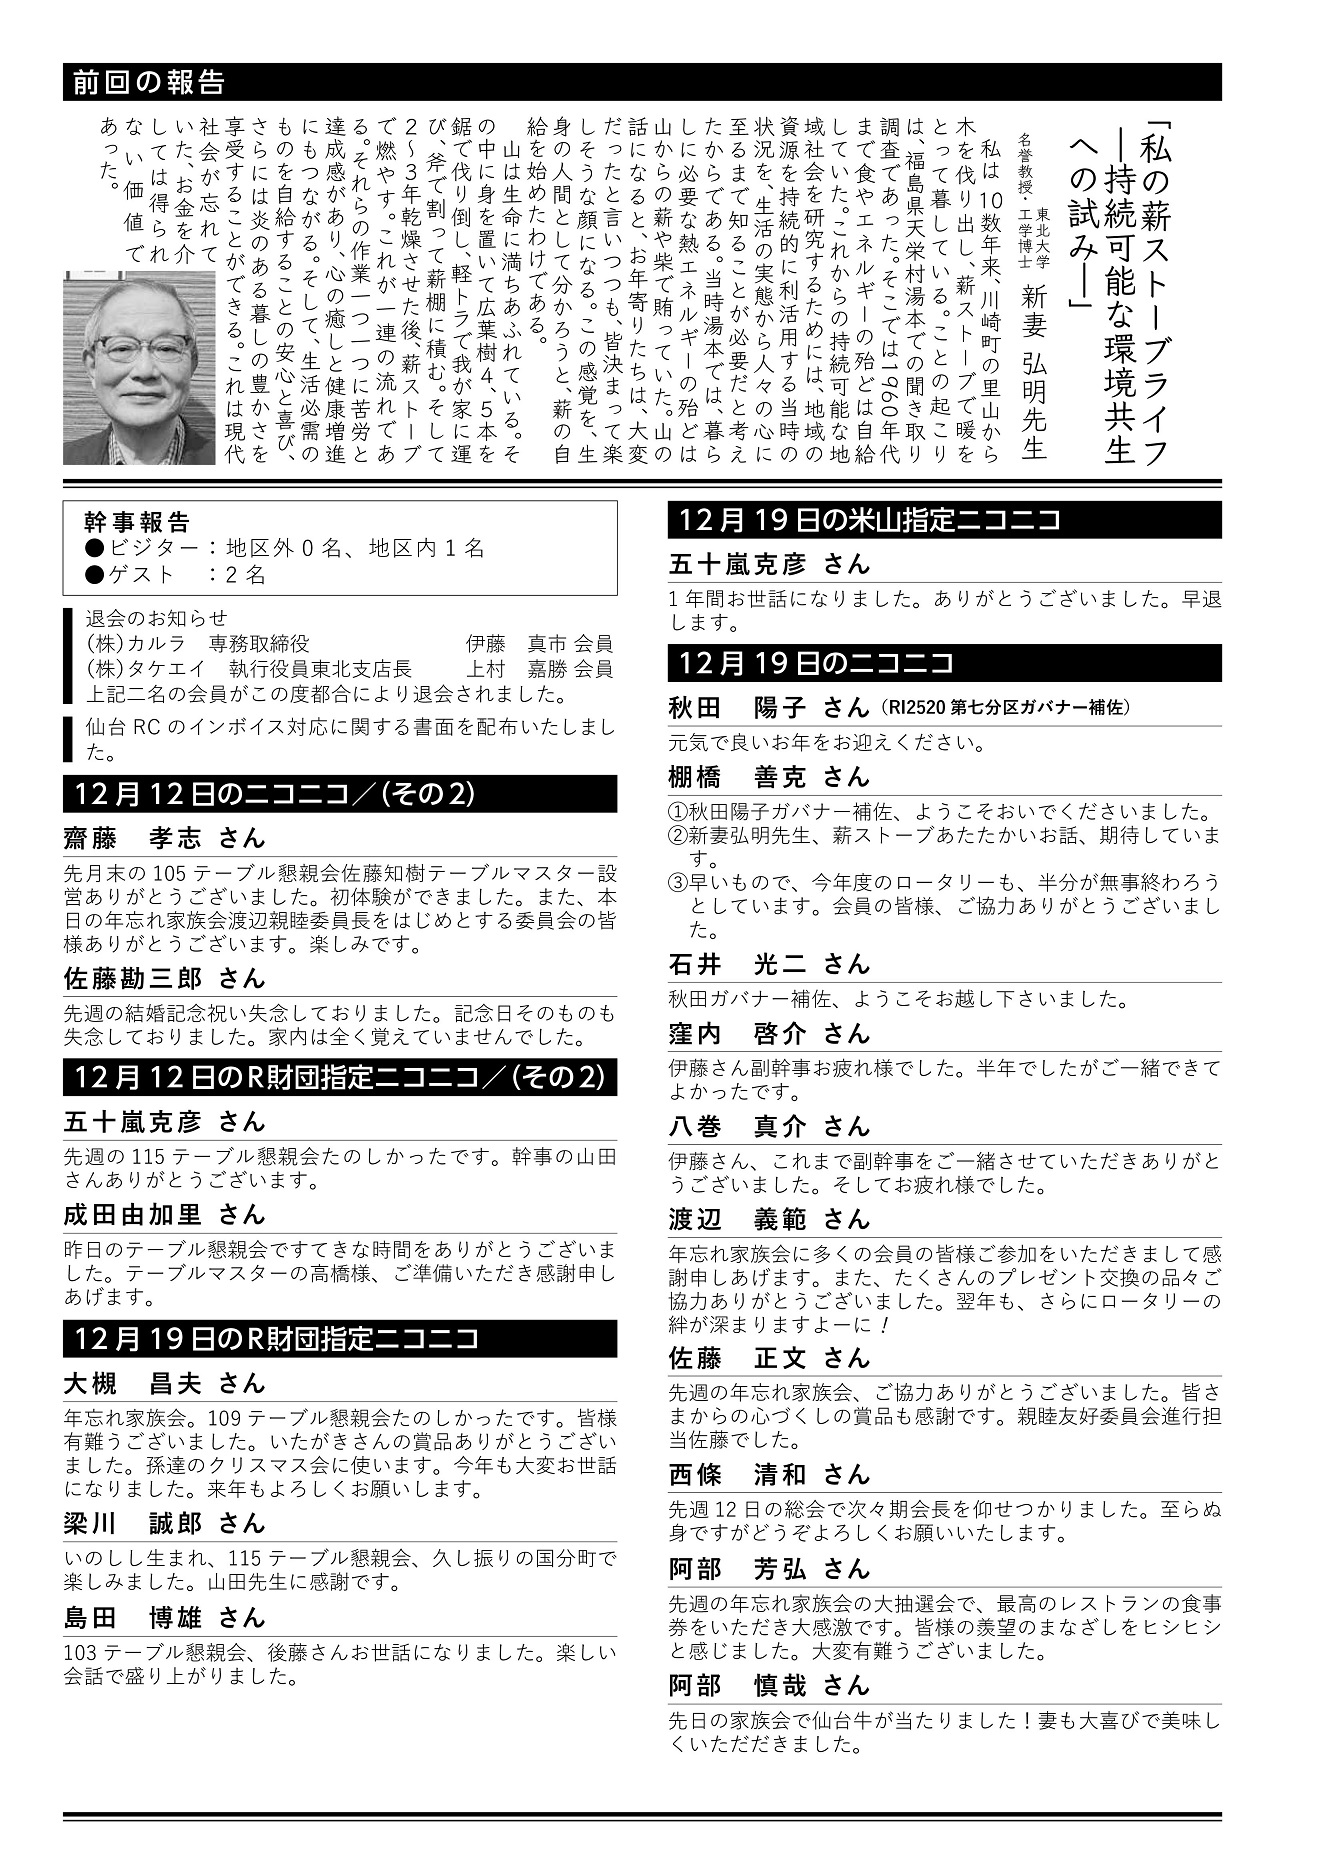 前回の報告
「私の薪ストーブライフ
―持続可能な環境共生
への試み―」
東北大学
名誉教授・工学博士 新妻 弘明先生
私は10数年来、川崎町の里山から
木を伐り出し、薪ストーブで暖を
とって暮している。ことの起こり
は、福島県天栄村湯本での聞き取り
調査であった。そこでは1960年代
まで食やエネルギーの殆どは自給
していた。これからの持続可能な地
域社会を研究するためには、地域の
資源を持続的に利活用する当時の
状況を、生活の実態から人々の心に
至るまで知ることが必要だと考え
たからである。当時湯本では、暮ら
しに必要な熱エネルギーの殆どは
山からの薪や柴で賄っていた。山の
話になると、お年寄りたちは、大変
だったと言いつつも、皆決まって楽
しそうな顔になる。この感覚を、生
身の人間として分かろうと、薪の自
給を始めたわけである。
山は生命に満ちあふれている。そ
の中に身を置いて広葉樹4、5本を
鋸で伐り倒し、軽トラで我が家に運
び、斧で割って薪棚に積む。そして
2～3年乾燥させた後、薪ストーブ
で燃やす。これが一連の流れであ
る。それらの作業一つ一つに苦労と
達成感があり、心の癒しと健康増進
にもつながる。そして、生活必需の
ものを自給することの安心と喜び、
さらには炎のある暮しの豊かさを
享受することができる。これは現代
社会が忘れて
いた、お金を介
しては得られ
ない価値で
あった。
幹事報告
●ビジター：地区外 0 名、地区内 1 名
●ゲスト　：2 名
退会のお知らせ
(株)カルラ　専務取締役　伊藤　真市 会員
(株)タケエイ　執行役員東北支店長　上村　嘉勝 会員
上記二名の会員がこの度都合により退会されました。
仙台 RC のインボイス対応に関する書面を配布いたしまし
た。
12月12日のニコニコ／(その2)
齋藤　孝志 さん
先月末の 105 テーブル懇親会佐藤知樹テーブルマスター設
営ありがとうございました。初体験ができました。また、本
日の年忘れ家族会渡辺親睦委員長をはじめとする委員会の皆
様ありがとうございます。楽しみです。
佐藤勘三郎 さん
先週の結婚記念祝い失念しておりました。記念日そのものも
失念しておりました。家内は全く覚えていませんでした。
12月12日のR財団指定ニコニコ／(その2)
五十嵐克彦 さん
先週の 115 テーブル懇親会たのしかったです。幹事の山田
さんありがとうございます。
成田由加里 さん
昨日のテーブル懇親会ですてきな時間をありがとうございま
した。テーブルマスターの高橋様、ご準備いただき感謝申し
あげます。
12月19日のR財団指定ニコニコ
大槻　昌夫 さん
年忘れ家族会。109 テーブル懇親会たのしかったです。皆様
有難うございました。いたがきさんの賞品ありがとうござい
ました。孫達のクリスマス会に使います。今年も大変お世話
になりました。来年もよろしくお願いします。
梁川　誠郎 さん
いのしし生まれ、115 テーブル懇親会、久し振りの国分町で
楽しみました。山田先生に感謝です。
島田　博雄 さん
103 テーブル懇親会、後藤さんお世話になりました。楽しい
会話で盛り上がりました。
12月19日の米山指定ニコニコ
五十嵐克彦 さん
1 年間お世話になりました。ありがとうございました。早退
します。
12月19日のニコニコ
秋田　陽子 さん（RI2520 第七分区ガバナー補佐）
元気で良いお年をお迎えください。
棚橋　善克 さん
①秋田陽子ガバナー補佐、ようこそおいでくださいました。
②新妻弘明先生、薪ストーブあたたかいお話、期待していま
す。
③早いもので、今年度のロータリーも、半分が無事終わろう
としています。会員の皆様、ご協力ありがとうございまし
た。
石井　光二 さん
秋田ガバナー補佐、ようこそお越し下さいました。
窪内　啓介 さん
伊藤さん副幹事お疲れ様でした。半年でしたがご一緒できて
よかったです。
八巻　真介 さん
伊藤さん、これまで副幹事をご一緒させていただきありがと
うございました。そしてお疲れ様でした。
渡辺　義範 さん
年忘れ家族会に多くの会員の皆様ご参加をいただきまして感
謝申しあげます。また、たくさんのプレゼント交換の品々ご
協力ありがとうございました。翌年も、さらにロータリーの
絆が深まりますよーに！
佐藤　正文 さん
先週の年忘れ家族会、ご協力ありがとうございました。皆さ
まからの心づくしの賞品も感謝です。親睦友好委員会進行担
当佐藤でした。
西條　清和 さん
先週 12 日の総会で次々期会長を仰せつかりました。至らぬ
身ですがどうぞよろしくお願いいたします。
阿部　芳弘 さん
先週の年忘れ家族会の大抽選会で、最高のレストランの食事
券をいただき大感激です。皆様の羨望のまなざしをヒシヒシ
と感じました。大変有難うございました。
阿部　慎哉 さん
先日の家族会で仙台牛が当たりました！妻も大喜びで美味し
くいただだきました。